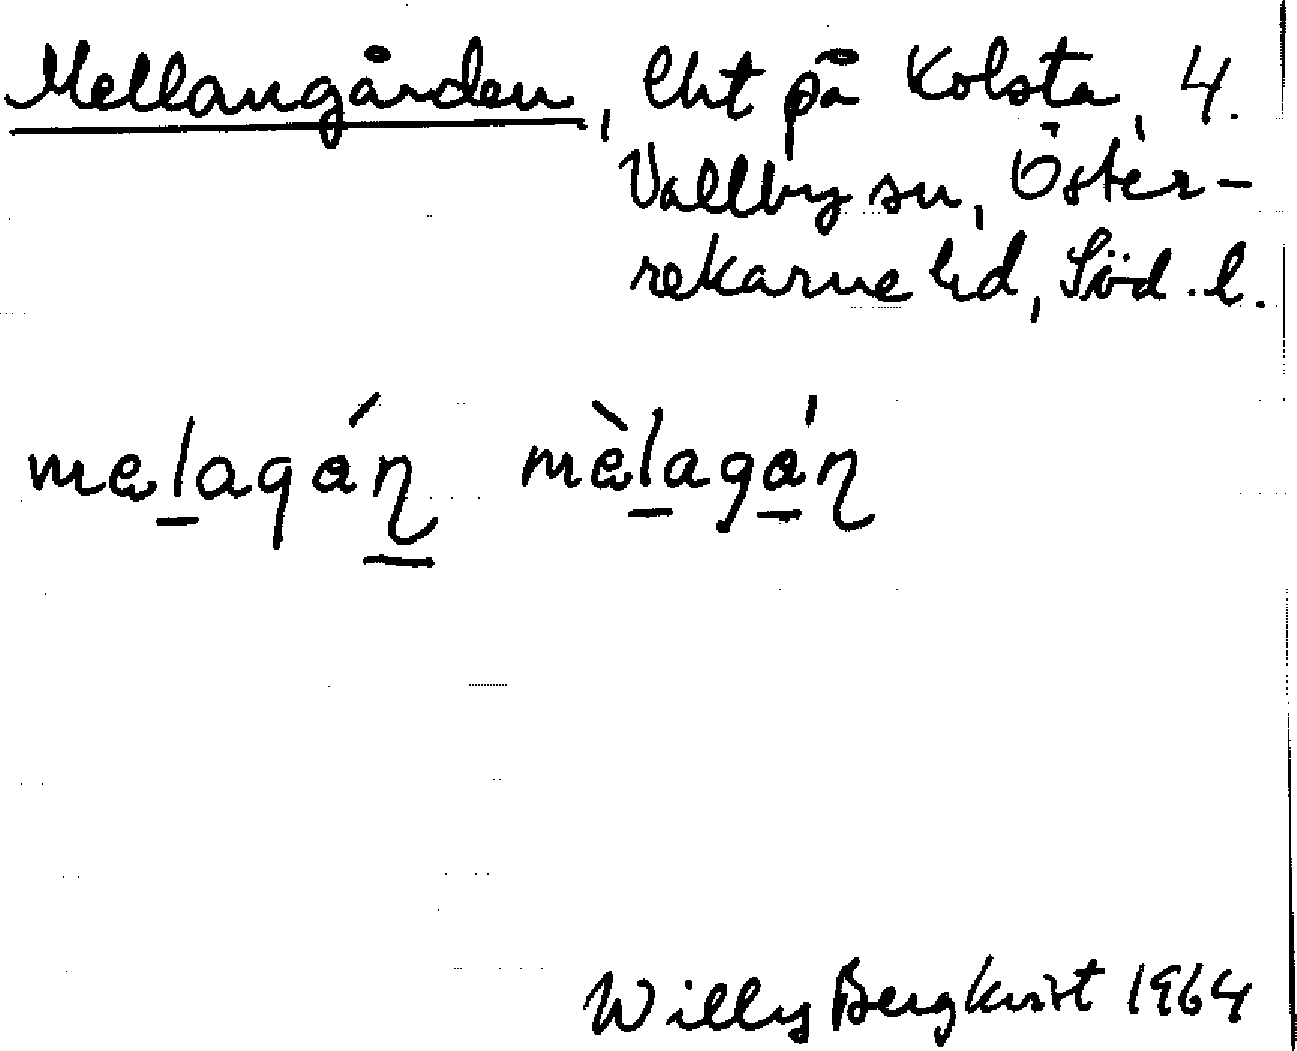 Mellangården, Eht på Kolsta, 4.
Vallby sn, Öster-
rekarne hd, Söd. l.
melagán mèlagán
Willy Bergkvist 1964